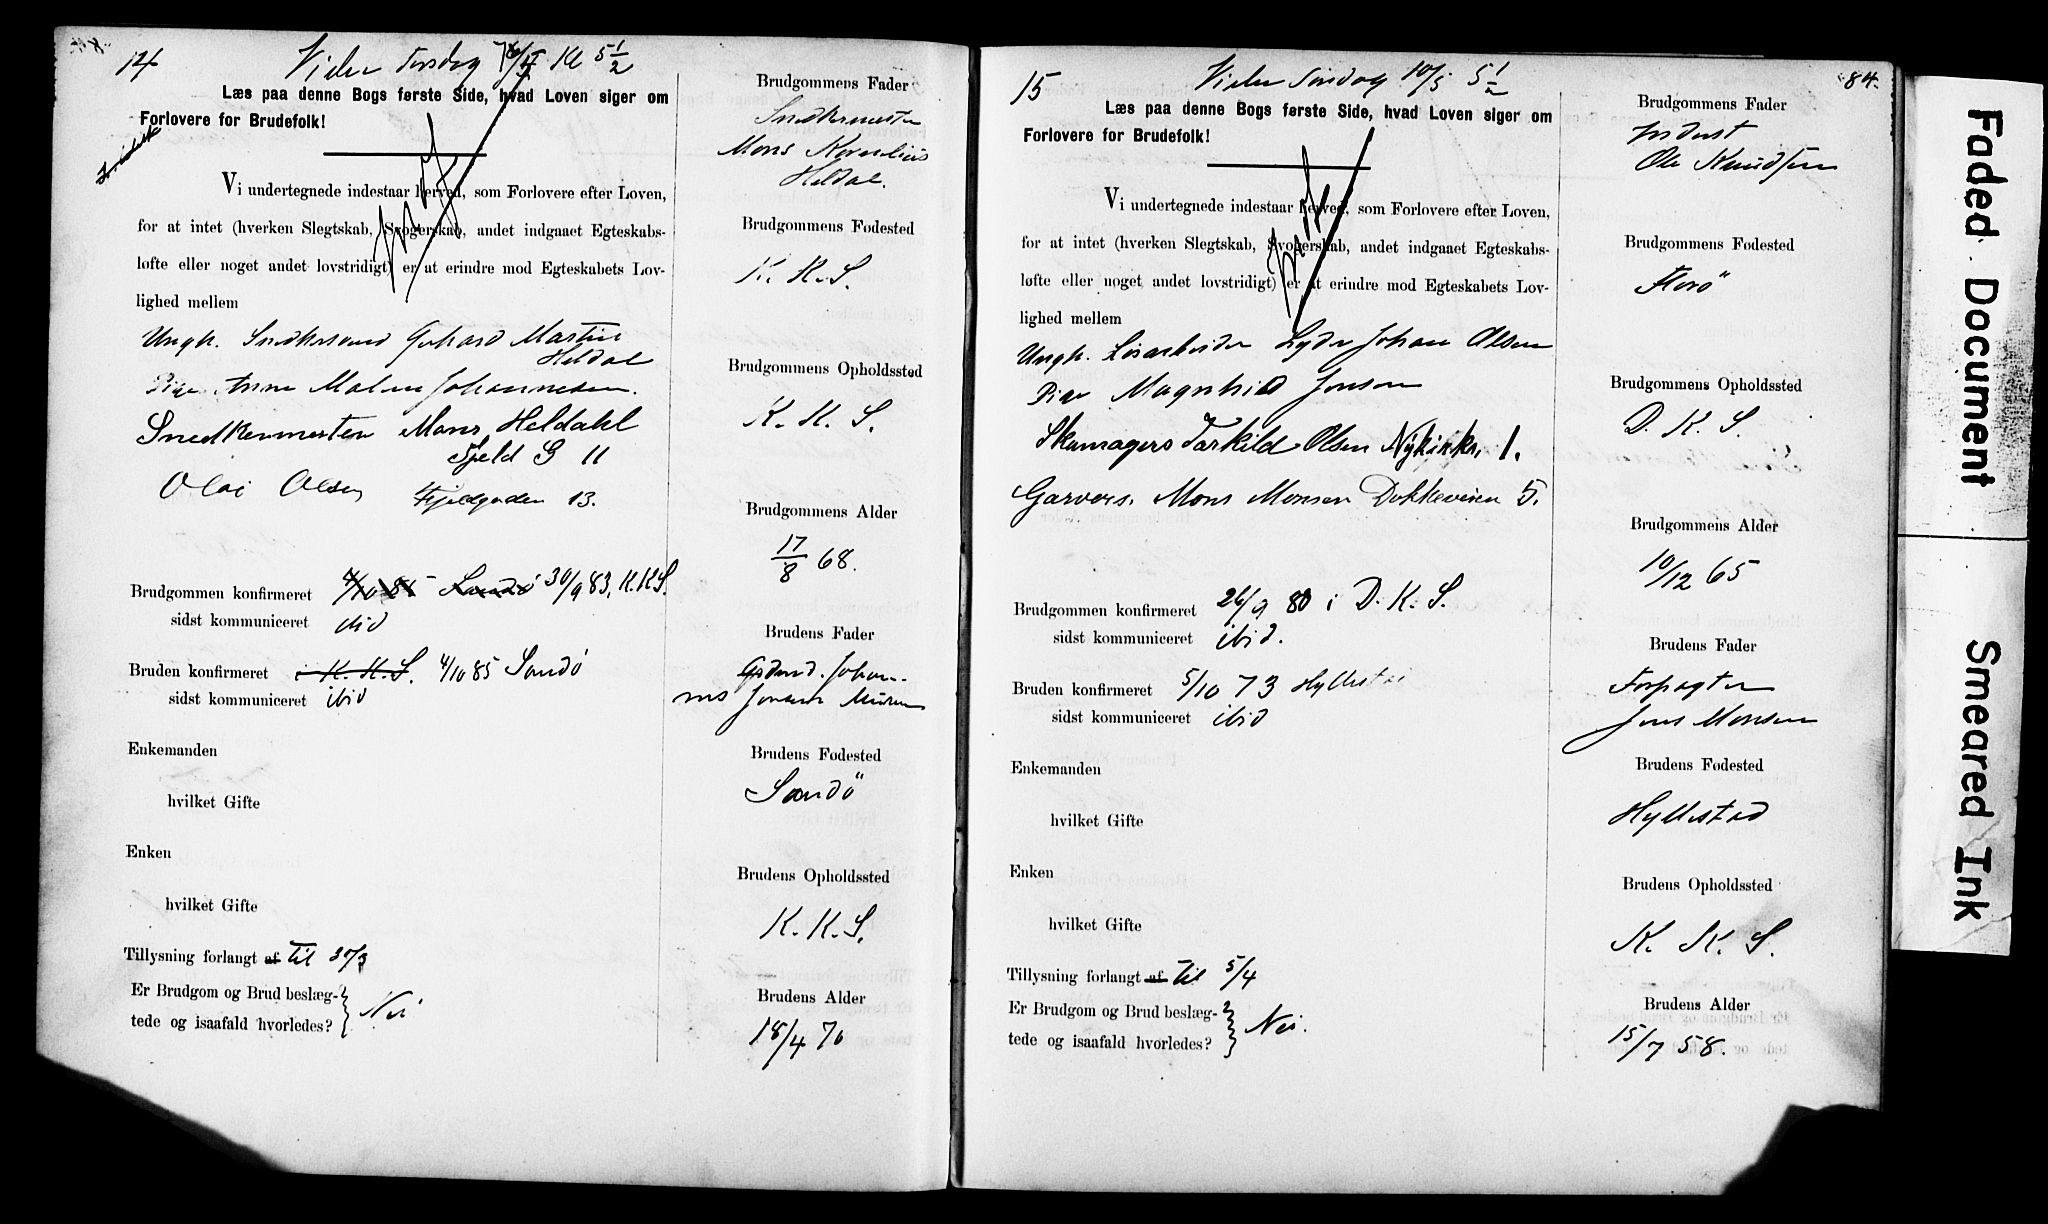 14
Vies Torsdag Kl 5 1/2
Læs paa denne Bogs første Side, hvad Loven siger om
Forlovere for Brudefolk!
Vi undertegnede indestaar herved, som Forlovere efter Loven,
for at intet (hverken Slegtskab, Svogerskab, andet indgaaet Egteskabs-
løfte eller noget andet lovstridigt) er at erindre mod Egteskabets Lov-
lighed mellem
Ungk. Snedkersvend Gerhard Martin
Heldal
Pige Anne Malene Johannesen.
Snedkermester Mons Heldahl
Fjeld G 11
Olai Olsen Fjeldgaden 13.
Brudgommen konfirmeret 4/10 85 Sandö 30/9 83, K.K.S.
sidst kommuniceret ibid
Bruden konfirmeret i K.K.S. 4/10 85 Sandö
sidst kommuniceret ibid
Enkemanden
hvilket Gifte
Enken
hvilket Gifte
Tillysning forlangt af til 30/3
Er Brudgom og Brud beslæg-
tede og isaafald hvorledes? Nei
Brudgommens Fader
Snedkermester
Mons Kornelius
Heldal.
Brudgommens Fødested
K. K. S.
Brudgommens Opholdssted
K. K. S.
Brudgommens Alder
17/8 68.
Brudens Fader
Gdmd. Johan-
nes Jensen
Brudens Fødested
Sandö
Brudens Opholdssted
K. K. S.
Brudens Alder
18/4 70
15
Vies Søndag 10/5 5 1/2
84.
Læs paa denne Bogs første Side, hvad Loven siger om
Forlovere for Brudefolk!
Vi undertegnede indestaar herved, som Forlovere efter Loven,
for at intet (hverken Slegtskab, Svogerskab, andet indgaaet Egteskabs-
løfte eller noget andet lovstridigt) er at erindre mod Egteskabets Lov-
lighed mellem
Ungk. Løsarbeider Lyder Johan Olsen
Pige Magnhild Jensen
Skomagers Torkild Olsen Nykirkea. 1.
Garvers. Mons Monsen Dokkeveien 5.
Brudgommen konfirmeret 26/9 80 i D. K. S.
sidst kommuniceret ibid.
Bruden konfirmeret 5/10 73 Hyllestad
sidst kommuniceret ibid
Enkemanden
hvilket Gifte
Enken
hvilket Gifte
Tillysning forlangt af til 5/4
Er Brudgom og Brud beslæg-
tede og isaafald hvorledes? Nei.
Brudgommens Fader
Inderst
Ole Knudsen
Brudgommens Fødested
Florö
Brudgommens Opholdssted
D. K. S.
Brudgommens Alder
10/12 65
Brudens Fader
Forpagter
Jens Monsen
Brudens Fødested
Hyllestad
Brudens Opholdssted
K. K. S.
Brudens Alder
15/7 58.
Faded Document
Smeared Ink